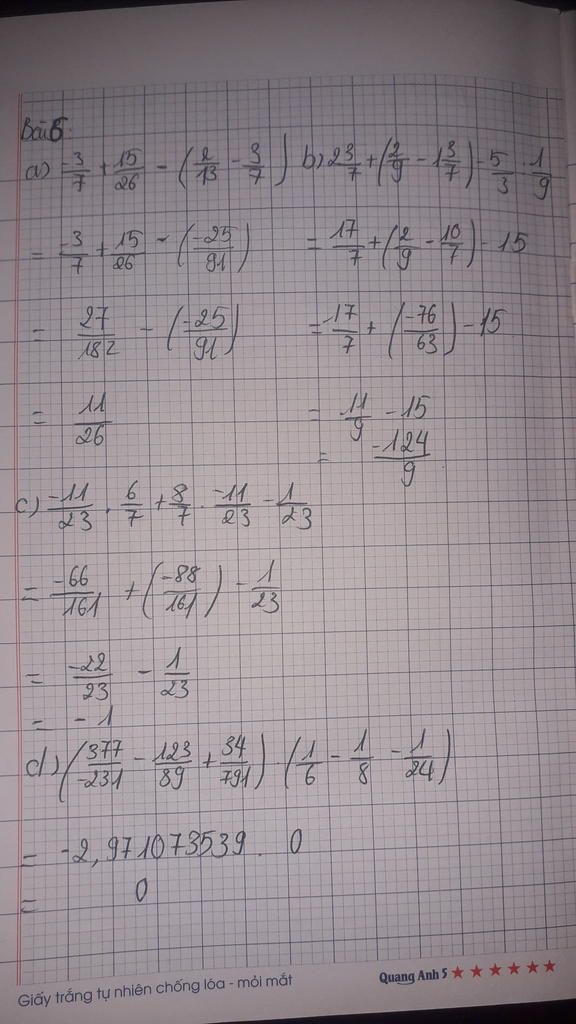 Bài 5:
a) -3/7 + 15/26 - (2/13 - 3/7)
= -3/7 + 15/26 - (-25/91)
= 27/182 - (-25/91)
= 11/26
b) 2 3/7 + (2/9 - 1 3/7) - 5/3 : 1/9
= 17/7 + (2/9 - 10/7) - 15
= 17/7 + (-76/63) - 15
= 11/9 - 15
= -124/9
c) -11/23 . 6/7 + 8/7 . -11/23 - 1/23
= -66/161 + (-88/161) - 1/23
= -22/23 - 1/23
= -1
d) (377/-231 - 123/89 + 34/791) . (1/6 - 1/8 - 1/24)
= -2,971073539 . 0
= 0
Giấy trắng tự nhiên chống lóa - mỏi mắt
Quang Anh 5